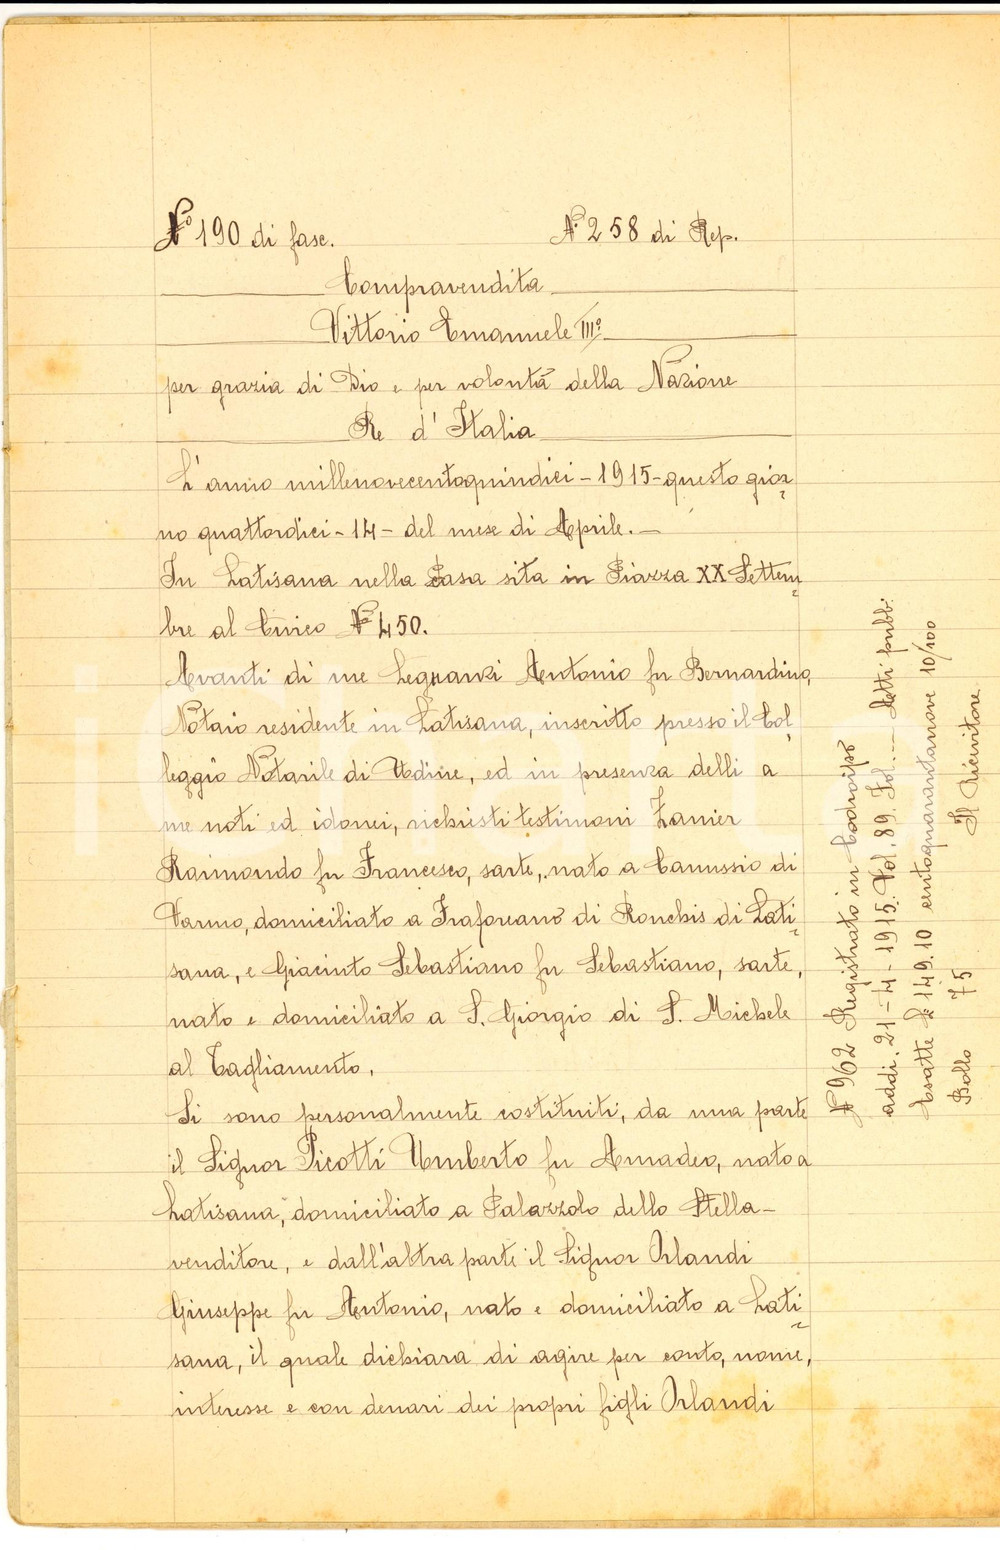 No 190 di fasc. No 258 di Rep.
Compravendita
Vittorio Emanuele IIIo
per grazia di Dio e per volontà della Nazione
Re d'Italia
L'anno millenovecentoquindici - 1915 - questo gior=
no quattordici - 14 - del mese di Aprile. —
In Latisana nella Casa sita in Piazza XX Settem=
bre al Civico No 450.
Avanti di me Leguanzi Antonio fu Bernardino,
Notaio residente in Latisana, inscritto presso il Col=
leggio Notarile di Udine, ed in presenza delli a
me noti ed idonei, richiesti testimoni Zanier
Raimondo fu Francesco, sarte, nato a Canussio di
Varmo, domiciliato a Fraforeano di Ronchis di Lati=
sana, e Giacinto Sebastiano fu Sebastiano, sarte,
nato e domiciliato a S. Giorgio di S. Michele
al Tagliamento.
Si sono personalmente costituiti, da una parte
il Signor Picotti Umberto fu Amadeo, nato a
Latisana, domiciliato a Palazzolo dello Stella -
venditore, e dall'altra parte il Signor Orlandi
Giuseppe fu Antonio, nato e domiciliato a Lati=
sana, il quale dichiara di agire per conto, nome,
interesse e con denari dei propri figli Orlandi
No 962 Registrato in Codroipo
addi. 21 - 4 - 1915. Vol. 89. Fol.... Atti pubb.
Esatte £ 149.10 centoquarantanove 10/100
Bollo 75 Il Ricevitore